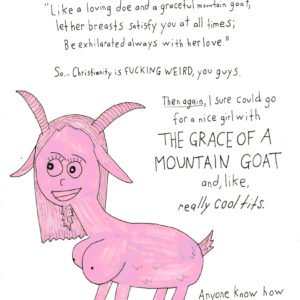 "Like a loving doe and a graceful mountain goat,
let her breasts satisfy you at all times;
Be exhilarated always with her love."
So... Christianity is FUCKING WEIRD, you guys.
Then again, I sure could go
for a nice girl with
THE GRACE OF A
MOUNTAIN GOAT
and, like,
really cool tits.
Anyone know how